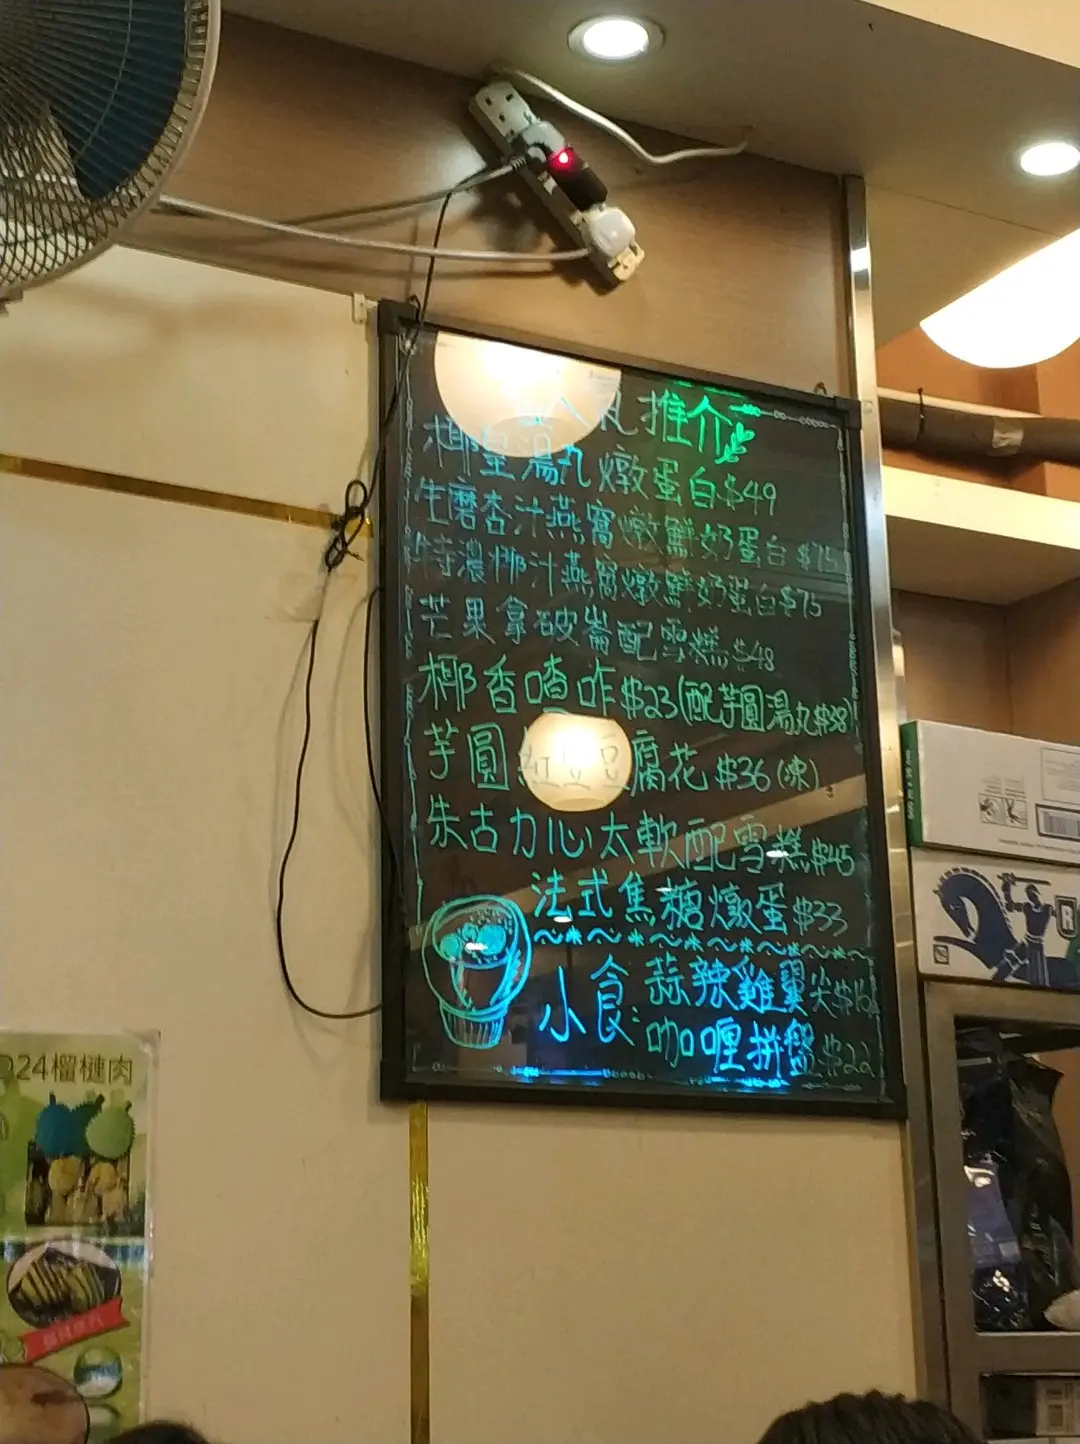 推介
椰皇湯丸燉蛋白$49
生磨杏汁燕窩燉鮮奶蛋白$75
特濃椰汁燕窩燉鮮奶蛋白$75
芒果拿破崙配雪糕$48
椰香喳咋$23(配芋圓湯丸$38)
芋圓紅豆豆腐花$36(凍)
朱古力心太軟配雪糕$45
法式焦糖燉蛋$33
小食:蒜辣雞翼尖
咖喱拼盤$22
D24榴槤肉
R